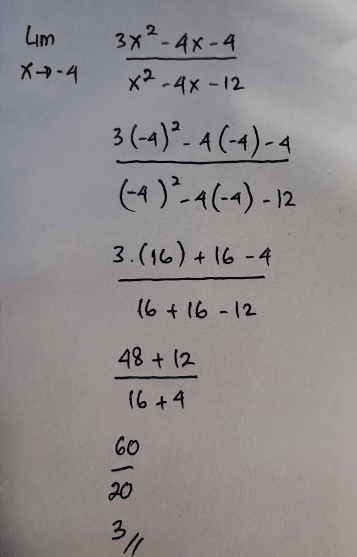 Lim 3x² - 4x - 4
x→-4 x² - 4x - 12
3(-4)² - 4(-4) - 4
(-4)² - 4(-4) - 12
3.(16) + 16 - 4
16 + 16 - 12
48 + 12
16 + 4
60
20
3//